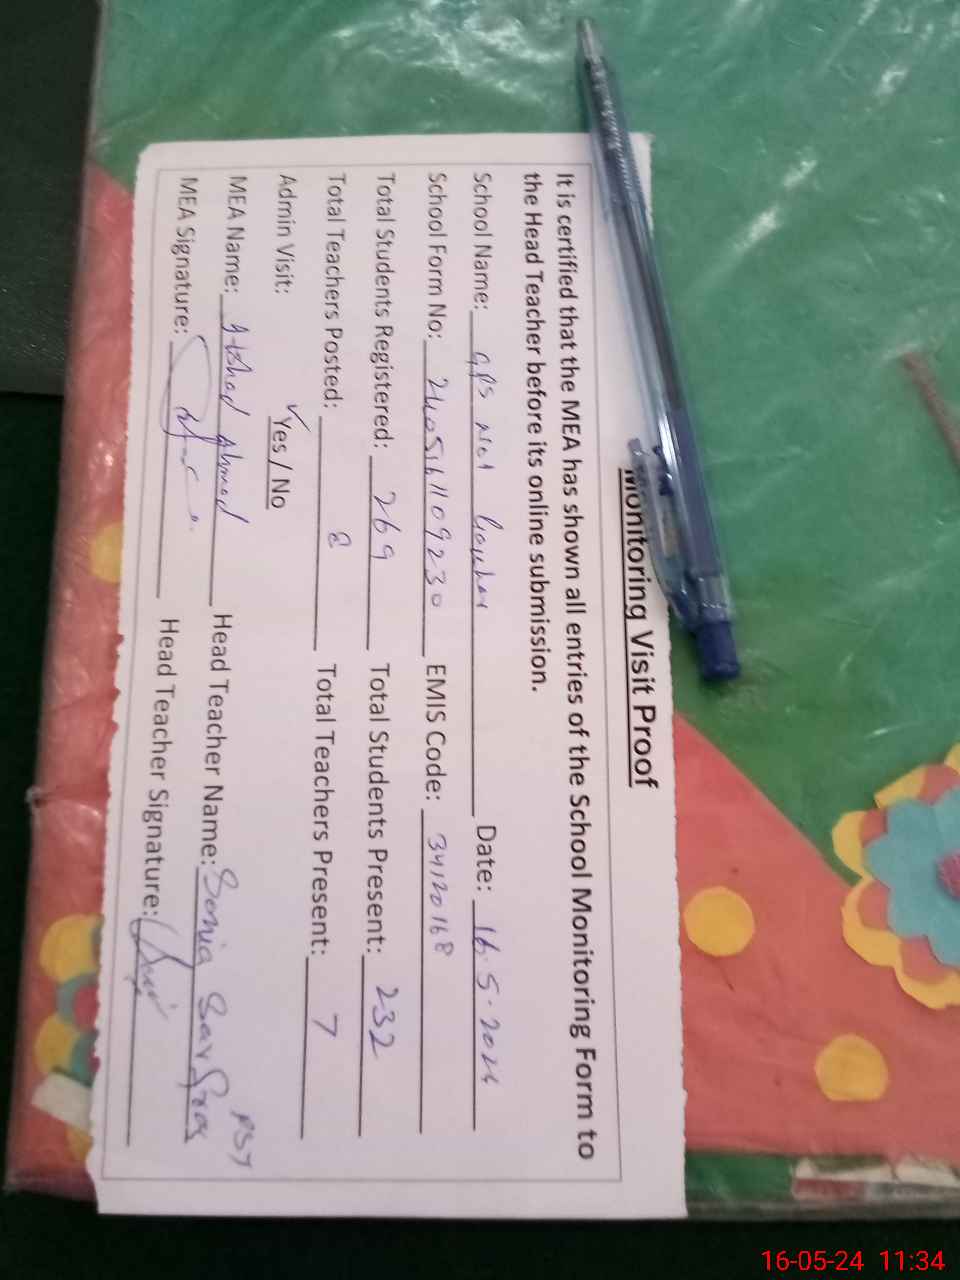 Monitoring Visit Proof
It is certified that the MEA has shown all entries of the School Monitoring Form to
the Head Teacher before its online submission.
School Name: GPS Not Date: 16.5.2024
School Form No: EMIS Code: 34120168
Total Students Registered: 269 Total Students Present: 232
Total Teachers Posted: 8 Total Teachers Present: 7
Admin Visit: ✓Yes / No
MEA Name: Arshad Ahmad Head Teacher Name: Sonia Sarfraz
PST
MEA Signature: Head Teacher Signature:
16-05-24 11:34